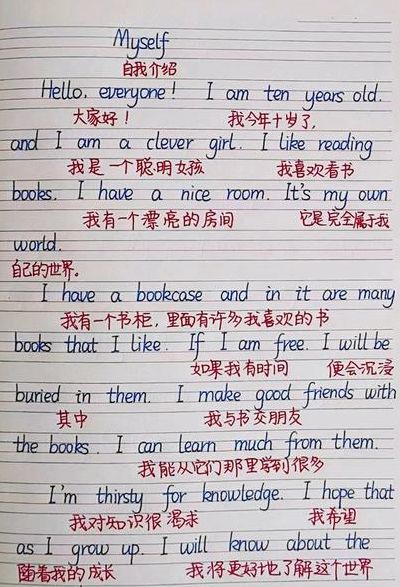 Myself
自我介绍
Hello, everyone! I am ten years old.
大家好! 我今年十岁了,
and I am a clever girl. I like reading
我是一个聪明女孩 我喜欢看书
books. I have a nice room. It's my own
我有一个漂亮的房间 它是完全属于我
world.
自己的世界。
I have a bookcase and in it are many
我有一个书柜,里面有许多我喜欢的书
books that I like. If I am free. I will be
如果我有时间 便会沉浸
buried in them. I make good friends with
其中 我与书交朋友
the books. I can learn much from them.
我能从它们那里学到很多
I'm thirsty for knowledge. I hope that
我对知识很渴求 我希望
as I grow up. I will know about the
随着我的成长 我将更好地了解这个世界